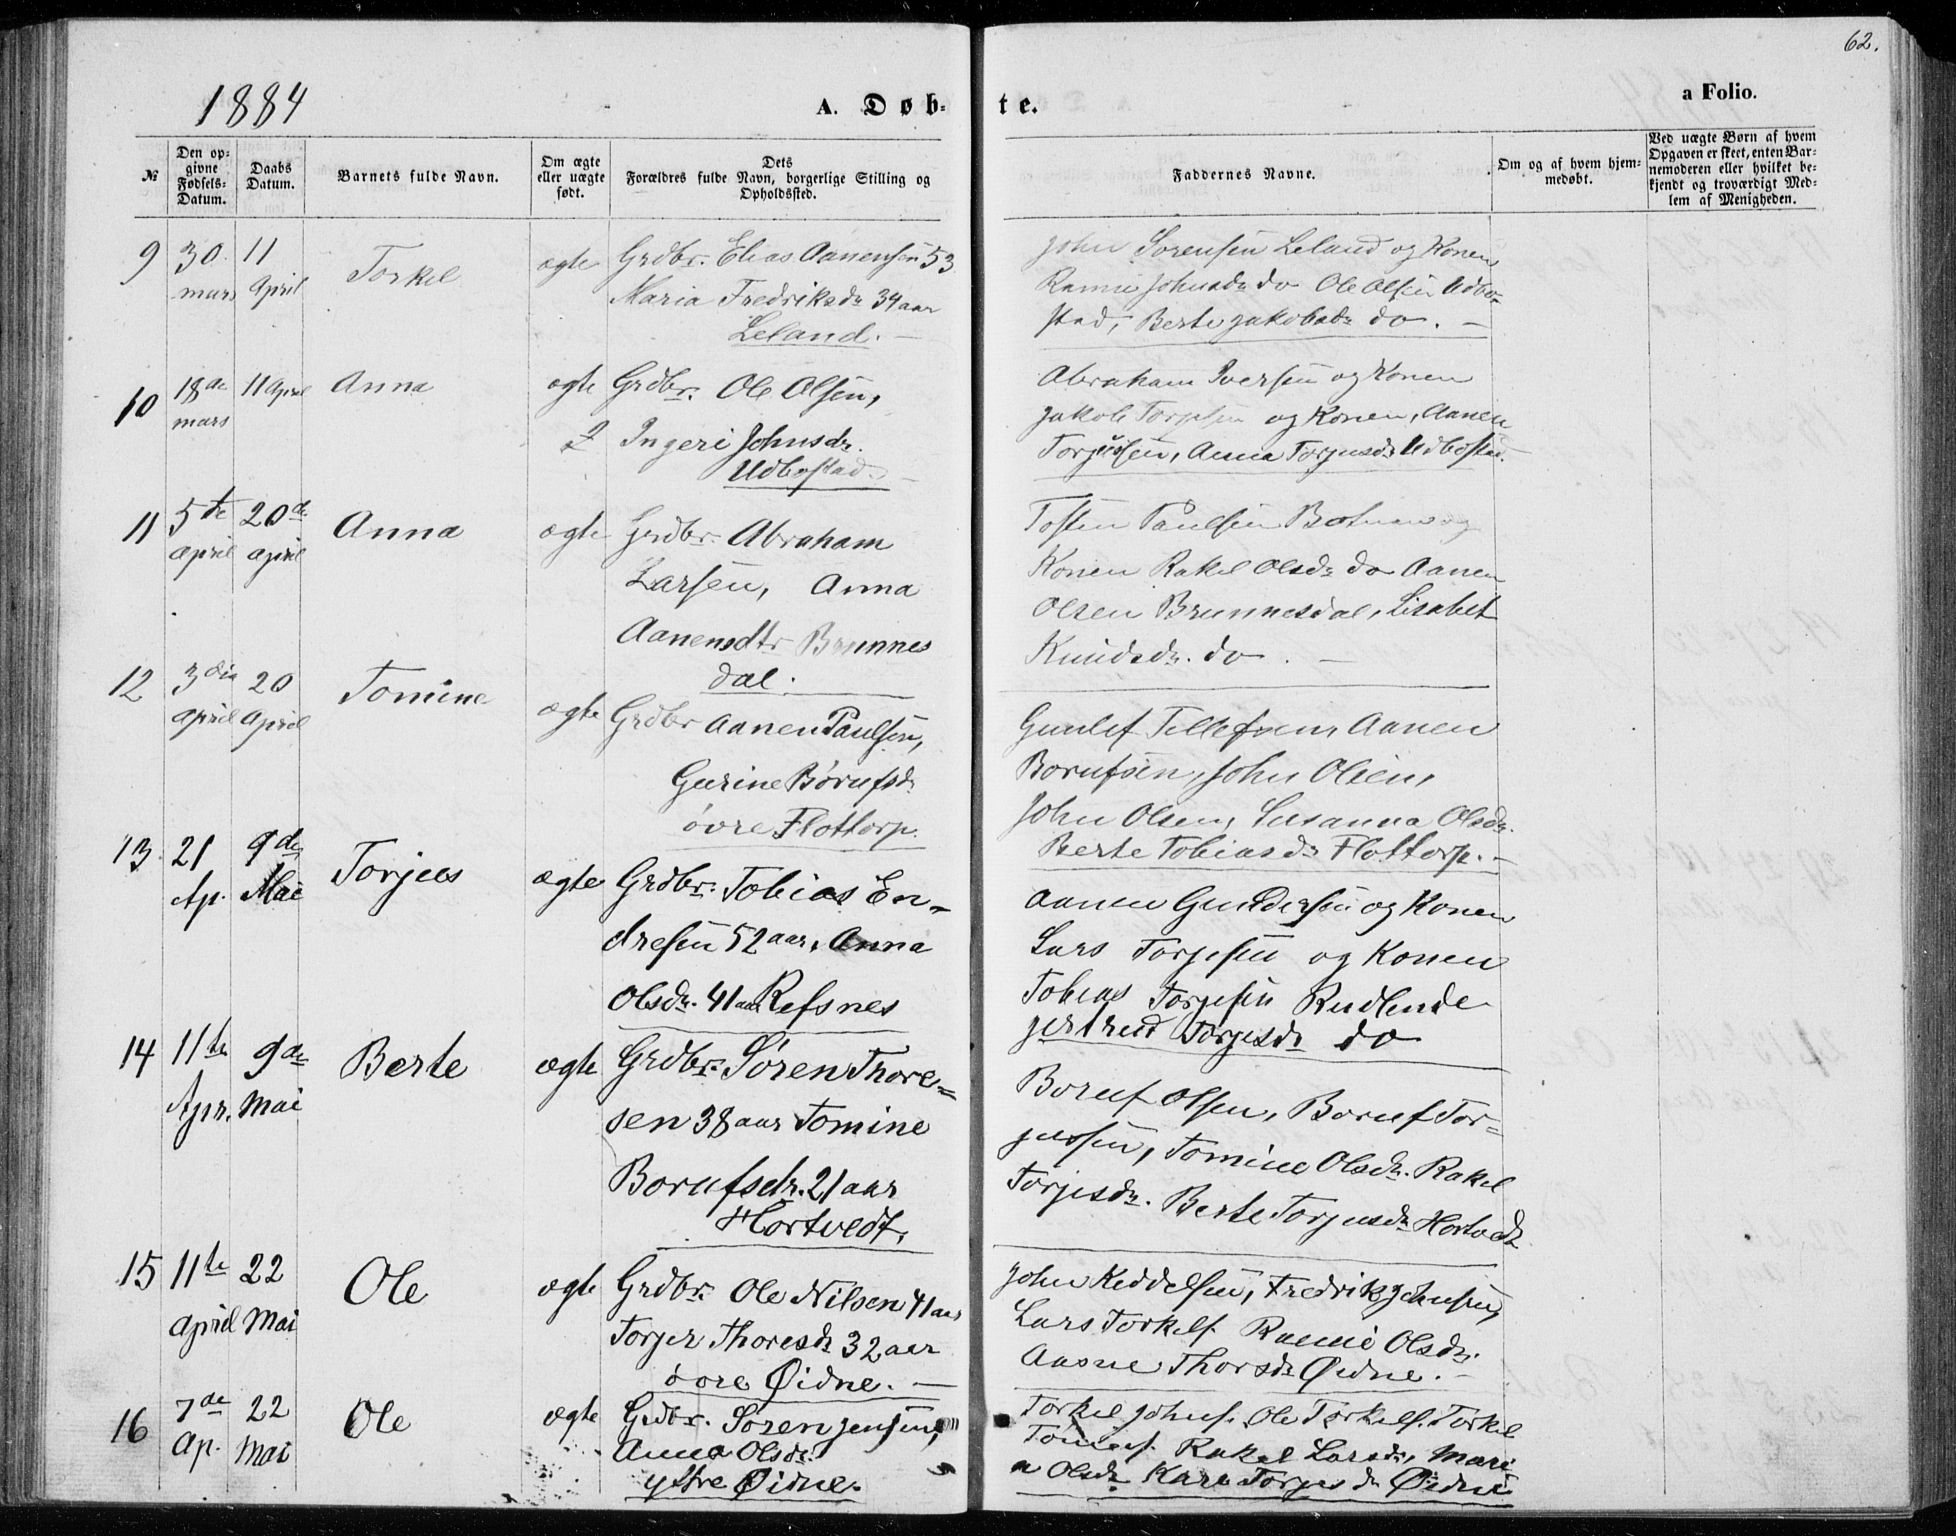 62.
1884
A. Døb-
te.
a Folio.
№
Den op-
givne
Fødsels-
Datum.
Daabs
Datum.
Barnets fulde Navn.
Om ægte
eller uægte
født.
Dets
Forældres fulde Navn, borgerlige Stilling og
Opholdssted.
Faddernes Navne.
Om og af hvem hjem-
medøbt.
Ved uægte Børn af hvem
Opgaven er skeet, enten Bar-
nemoderen eller hvilket be-
kjendt og troværdigt Med-
lem af Menigheden.
9
30.
mars
11
April
Torkel
ægte
Grdbr. Elias Aanensen 53
Maria Fredriksdr 34 aar
Leland.
John Sørensen Leland og Konen
Johnsdr do Ole Olsen Udbo-
stad, Berte Jakobsdr do.
10
18de
mars
11 April
Anna
ægte
Grdbr. Ole Olsen,
Ingeri Johnsdr.
Udbostad
Abraham Iversen og Konen
Jakob Torjusen og Konen, Aanen
Torjusen, Anna Torjusdr Udbostad.
11
5te
april
20de
april
Anna
ægte
Grdbr. Abraham
Larsen, Anna
Aanensdtr Brunnes
dal.
Tosten Paulsen og
Konen Rakel Olsdr do Aanen
Olsen Brunnesdal, Lisabet
Knudsdr. do.
12
3die
april
20
April
Tomine
ægte
Grdbr Aanen Paulsen,
Gurine Børufsdr
øvre Flottorp.
Gunlef Tellefsen, Aanen
Borufsen, John Olsen,
John Olsen, Susanna Olsdr.
Berte Tobiasdr Flottorp.
13.
21
Ap.
9de
Mai
Torjus
ægte
Grdbr. Tobias En-
dresen 52 aar, Anna
Olsdr. 41 aar Refsnes
Aanen Gundersen og Konen
Lars Torjesen og Konen
Tobias Torjesen
Torjesdr do
14
11te
Apr.
9de
Mai
Berte
ægte
Grdbr. Søren Thore-
sen 38 aar Tomine
Borufsdr. 21 aar
Hortvedt.
Boruf Olsen, Boruf Tor-
jussen, Tomine Olsdr. Rakel
Torjesdr. Berte Torjusdr Hortvedt
15
11te
april
22
Mai
Ole
ægte
Grdbr. Ole Nilsen 41 aar
Torjer Thoresdr 32 aar
øvre Øidne.
John Keddelsen, Fredrik Johnsen,
Lars Torkels. Olsdr.
Aasne Thorsdr Øidne.
16
7de
Ap.
22
Mai
Ole
ægte
Grdbr. Søren Jensen,
Anna Olsdr.
ytre Øidne.
Torkel Johns. Ole Torkels. Torkel
Rakel Larsdr, Mari
a Olsdr Kari Torjusdr Øidne